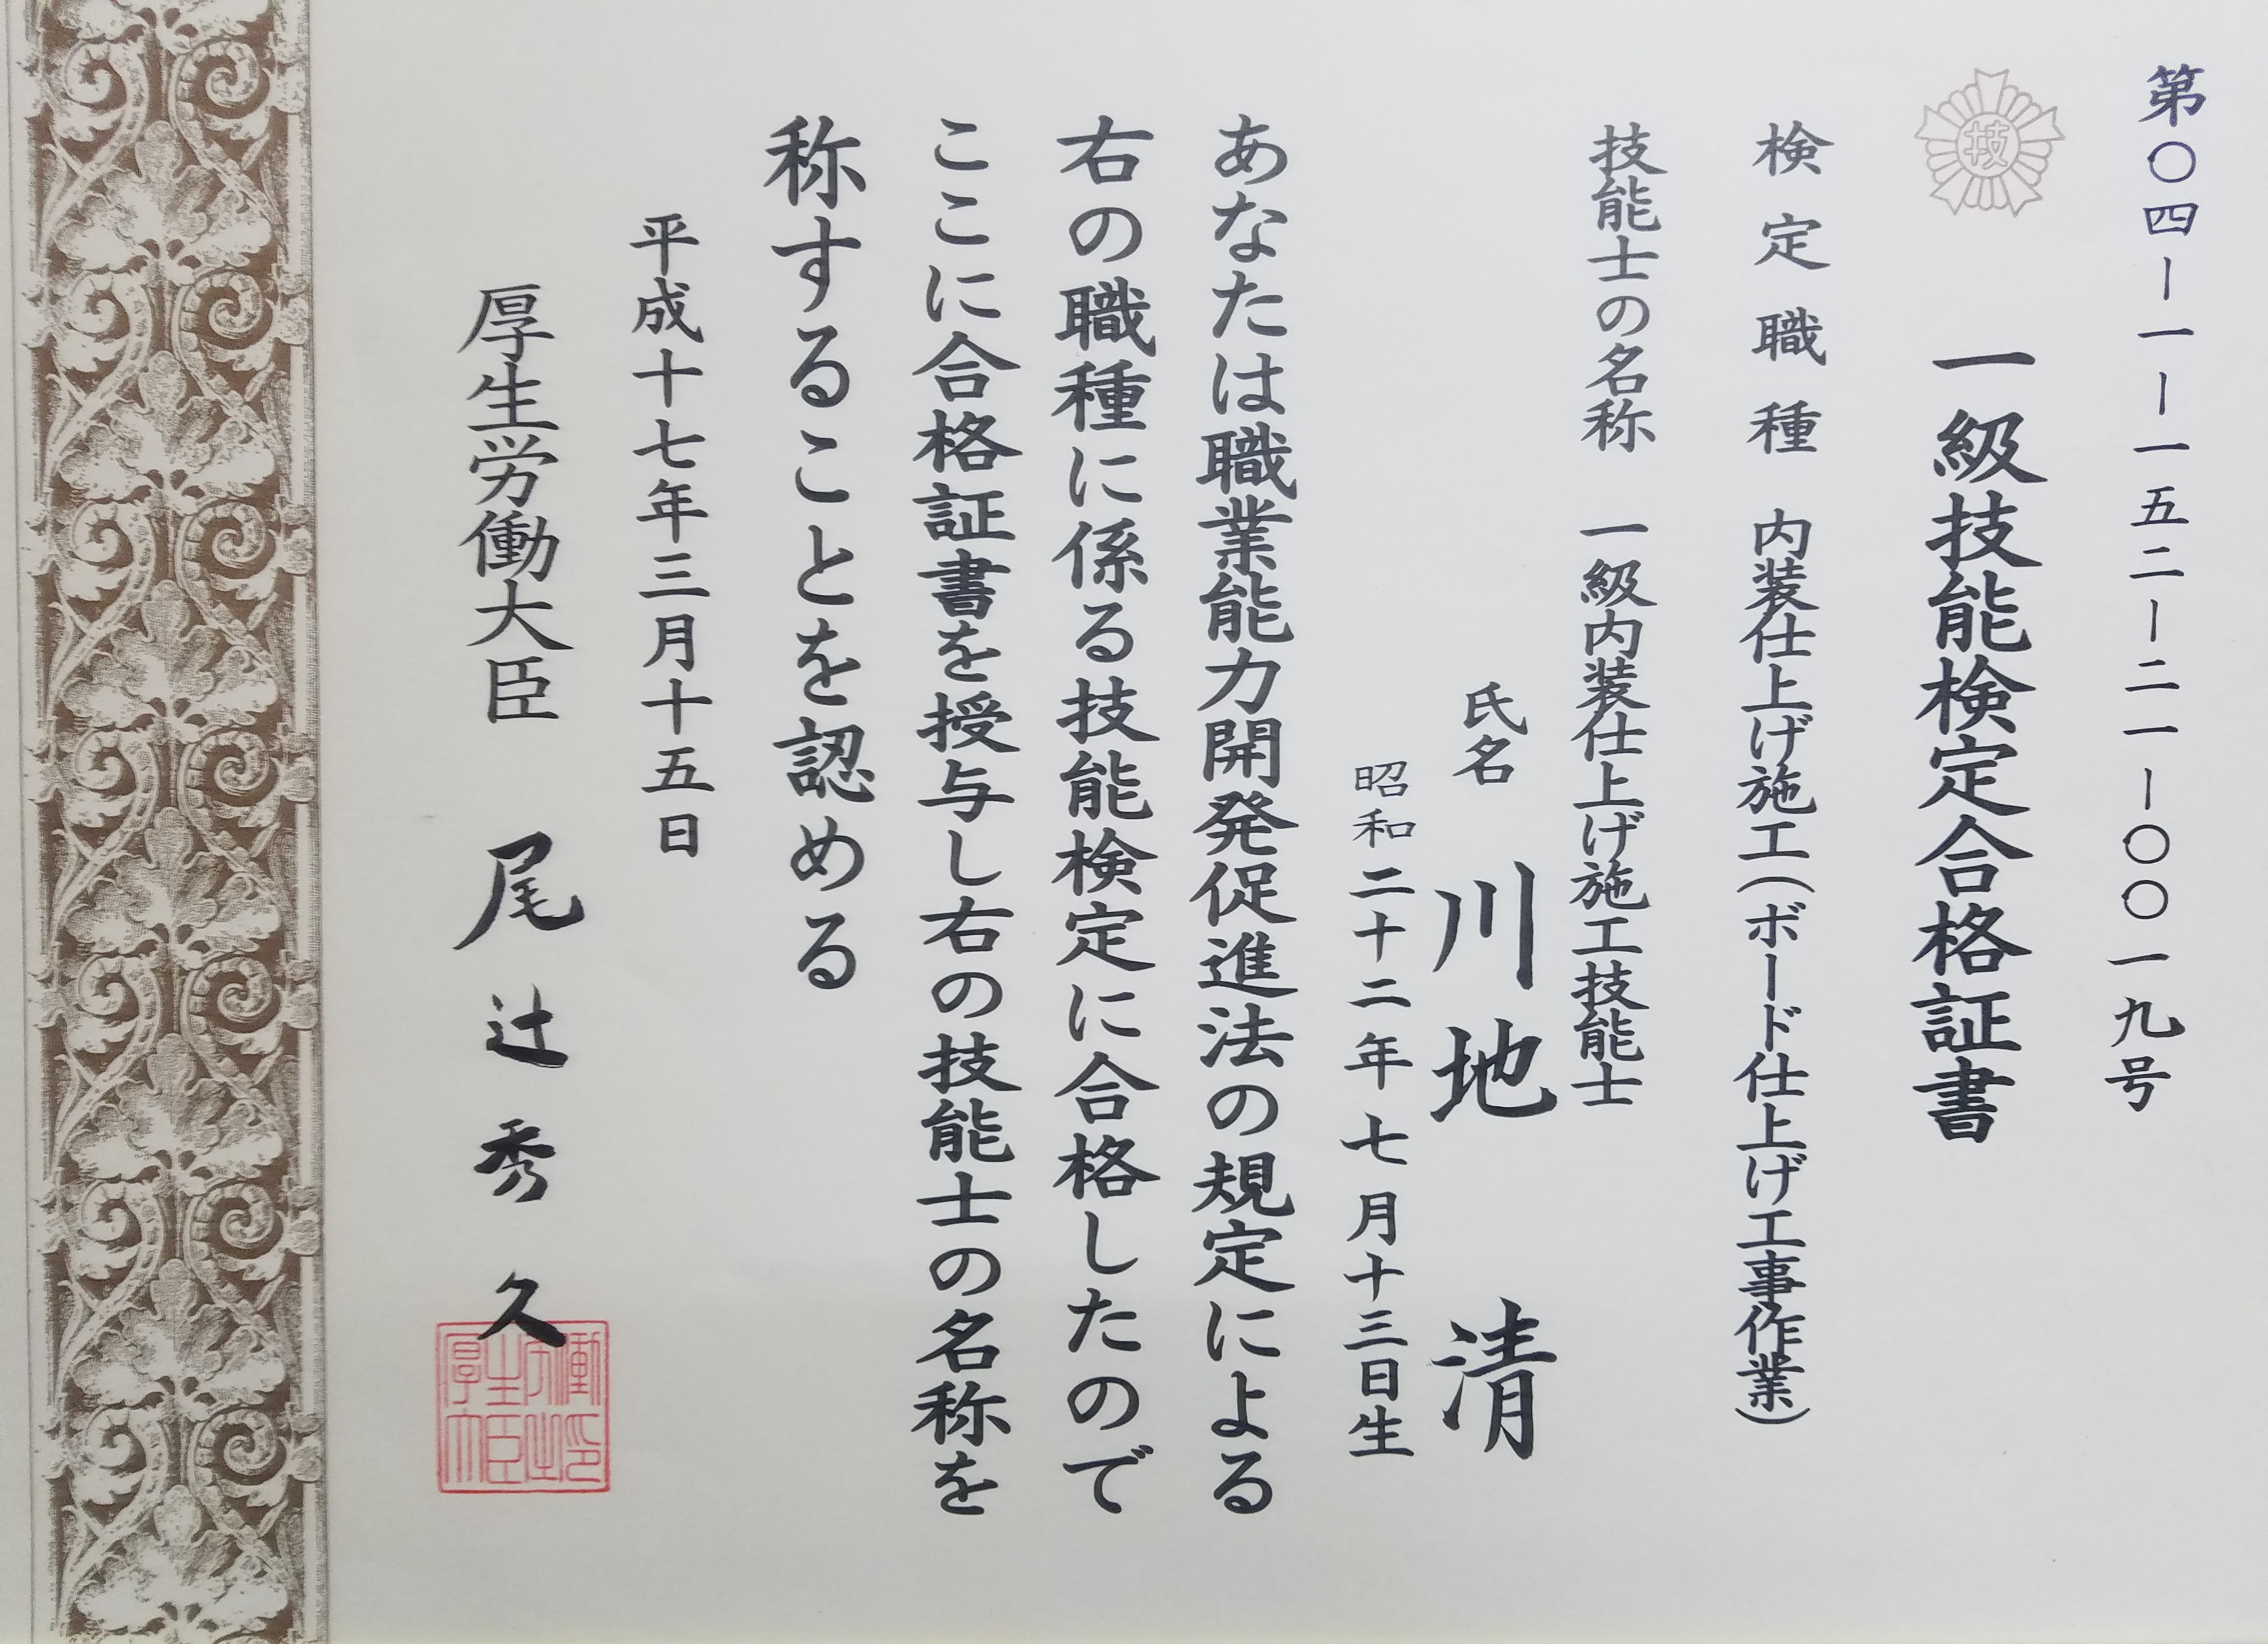 第〇四-一-一五二-二一-〇〇一九号
技
一級技能検定合格証書
検定職種 内装仕上げ施工(ボード仕上げ工事作業)
技能士の名称 一級内装仕上げ施工技能士
氏名 川地 清
昭和二十二年七月十三日生
あなたは職業能力開発促進法の規定による
右の職種に係る技能検定に合格したので
ここに合格証書を授与し右の技能士の名称を
称することを認める
平成十七年三月十五日
厚生労働大臣 尾辻秀久
厚生労働大臣之印